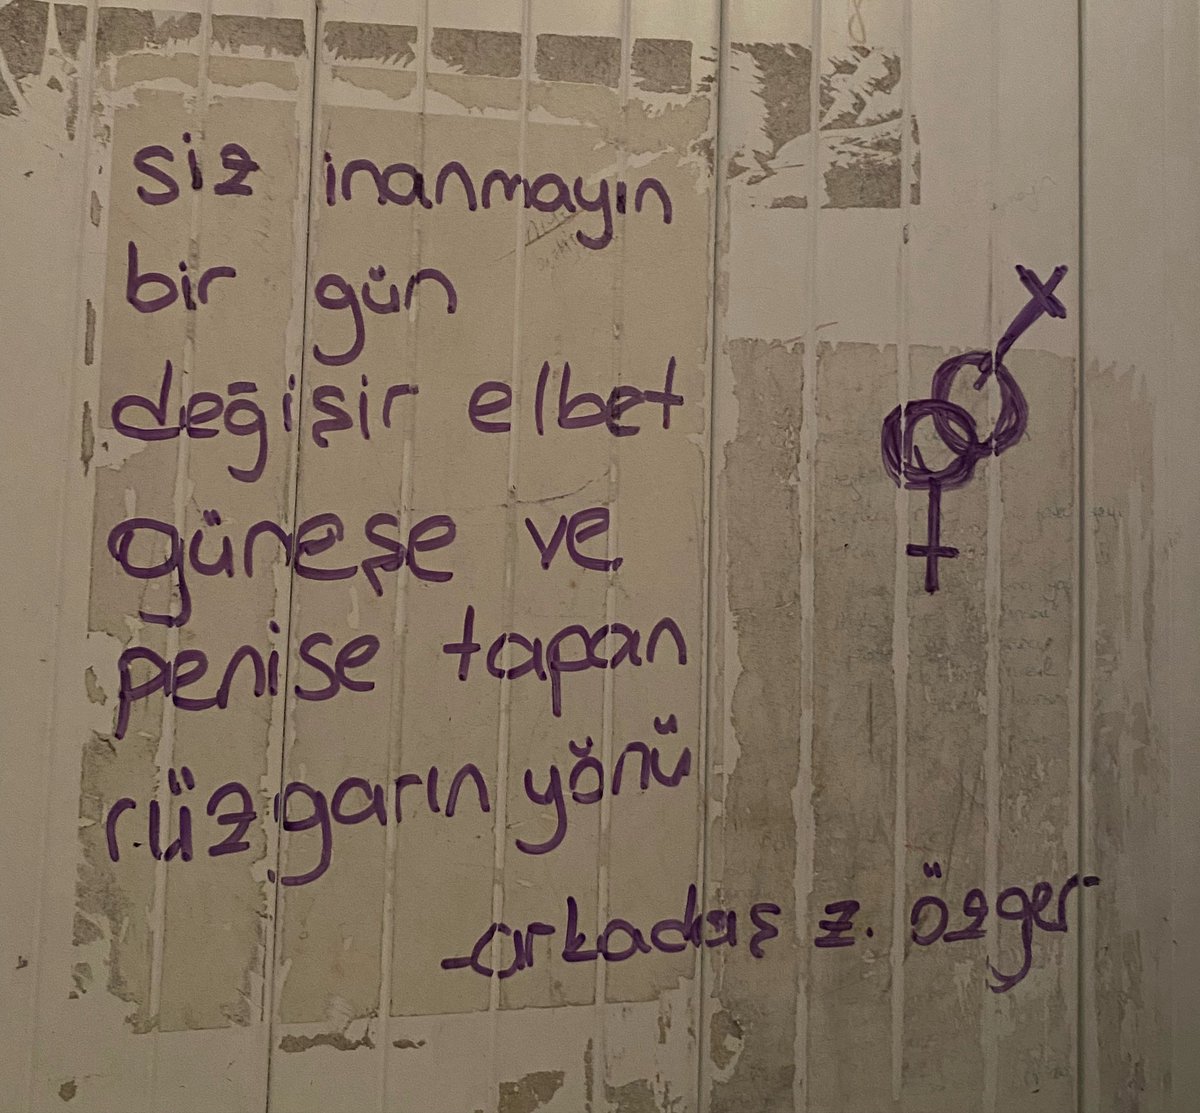 siz inanmayın
bir gün
değişir elbet
güneşe ve
penise tapan
rüzgarın yönü
-arkadaş z. özger